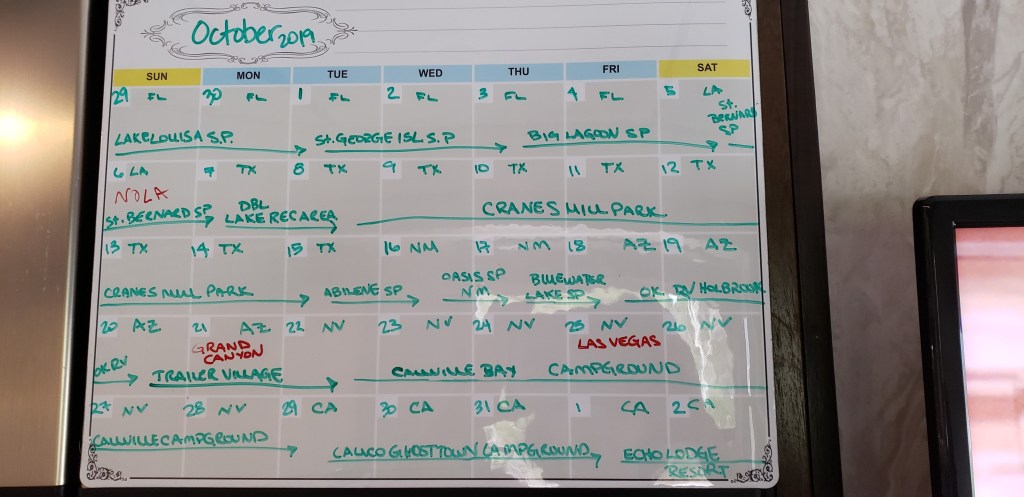 October 2019
SUN MON TUE WED THU FRI SAT
29 FL 30 FL 1 FL 2 FL 3 FL 4 FL 5 LA
St. BERNARD SP
LAKE LOUISA S.P. St. GEORGE ISL S.P BIG LAGOON SP
6 LA 7 TX 8 TX 9 TX 10 TX 11 TX 12 TX
NOLA
St. BERNARD SP DBL LAKE REC AREA CRANES MILL PARK
13 TX 14 TX 15 TX 16 NM 17 NM 18 AZ 19 AZ
CRANES MILL PARK ABILENE SP OASIS SP NM BLUEWATER LAKE SP OK RV HOLBROOK
20 AZ 21 AZ 22 NV 23 NV 24 NV 25 NV 26 NV
GRAND CANYON LAS VEGAS
OK RV TRAILER VILLAGE CALLVILLE BAY CAMPGROUND
27 NV 28 NV 29 CA 30 CA 31 CA 1 CA 2 CA
CALLVILLE CAMPGROUND CALICO GHOSTTOWN CAMPGROUND ECHO LODGE RESORT